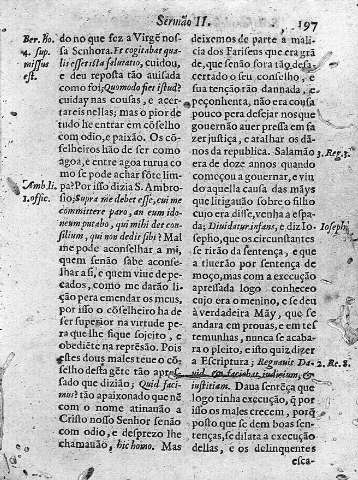 Sermão II.
197
Ber. ho.
4. sup.
missus
est.
do no que fez a Virgẽ nos
sa Senhora. Et cogitabat qua-
lis esset ista salutatio, cuidou,
e deu reposta tão auisada
como foi; Quomodo fiet istud?
cuiday nas cousas, e acer-
tareis nellas; mas o pior de
tudo he entrar em cõselho
com odio, e paixão. Os cõ-
selheiros hão de ser como
agoa, e entre agoa turua co
mo se pode achar sõte lim-
Amb li.
1. offic.
pa? Por isso dizia S. Ambro-
sio; Supra me debet esse, cui me
committere paro, an eum ido-
neum putabo, qui mihi det con-
silium, qui non dedit sibi? Mal
me pode aconselhar a mi,
quem senão sabe aconse-
lhar a si, e quem viue de pe-
cados, como me darão li-
ção pera emendar os meus,
por isso o cõselheiro ha de
ser superior na virtude pe-
ra que lhe fique sojeito, e
obediẽte na repósta. Pois
estes dous males teue o cõ-
selho desta gẽte tão apres-
sado que dizião; Quid faci-
mus? tão apaixonado que nẽ
com o nome atinauão a
Cristo nosso Senhor senão
com odio, e desprezo lhe
chamauão, hic homo. Mas
deixemos de parte a mali-
cia dos Fariseus que era grã
de, que senão fora tão desa-
certado o seu conselho, e
sua tenção tão dannada, e
peçonhenta, não era cousa
pouco pera desejar nos que
gouernão auer pressa em sa
zer justiça, e atalhar os dã-
nos da republica. Salamão
3. Reg. 3.
era de doze annos quando
começou a gouernar, e viu
do aquella causa das mãys
que litigauão sobre o filho
cujo era disse, venha a espa-
da; Diuidatur infans, e diz Io-
Ioseph.
sepho, que os circunstantes
se rirão da sentença, e que
a tiuerão por sentença de
moço, mas com a execução
apressada logo conheceo
cujo era o menino, e se deu
à verdadeira Mãy, que se
andara em prouas, e em tes
temunhas, nunca se acaba-
ra o pleito, e isto quiz dizer
a Escriptura; Regnauit Da-
2. Re. 8.
uid et faciebat iudicium, &
iustitiam. Daua sentẽça que
logo tinha execução, q̃ por
isso os males crecem, porq̃
posto que se dem boas sen-
tenças, se dilata a execução
dellas, e os delinquentes
esca-